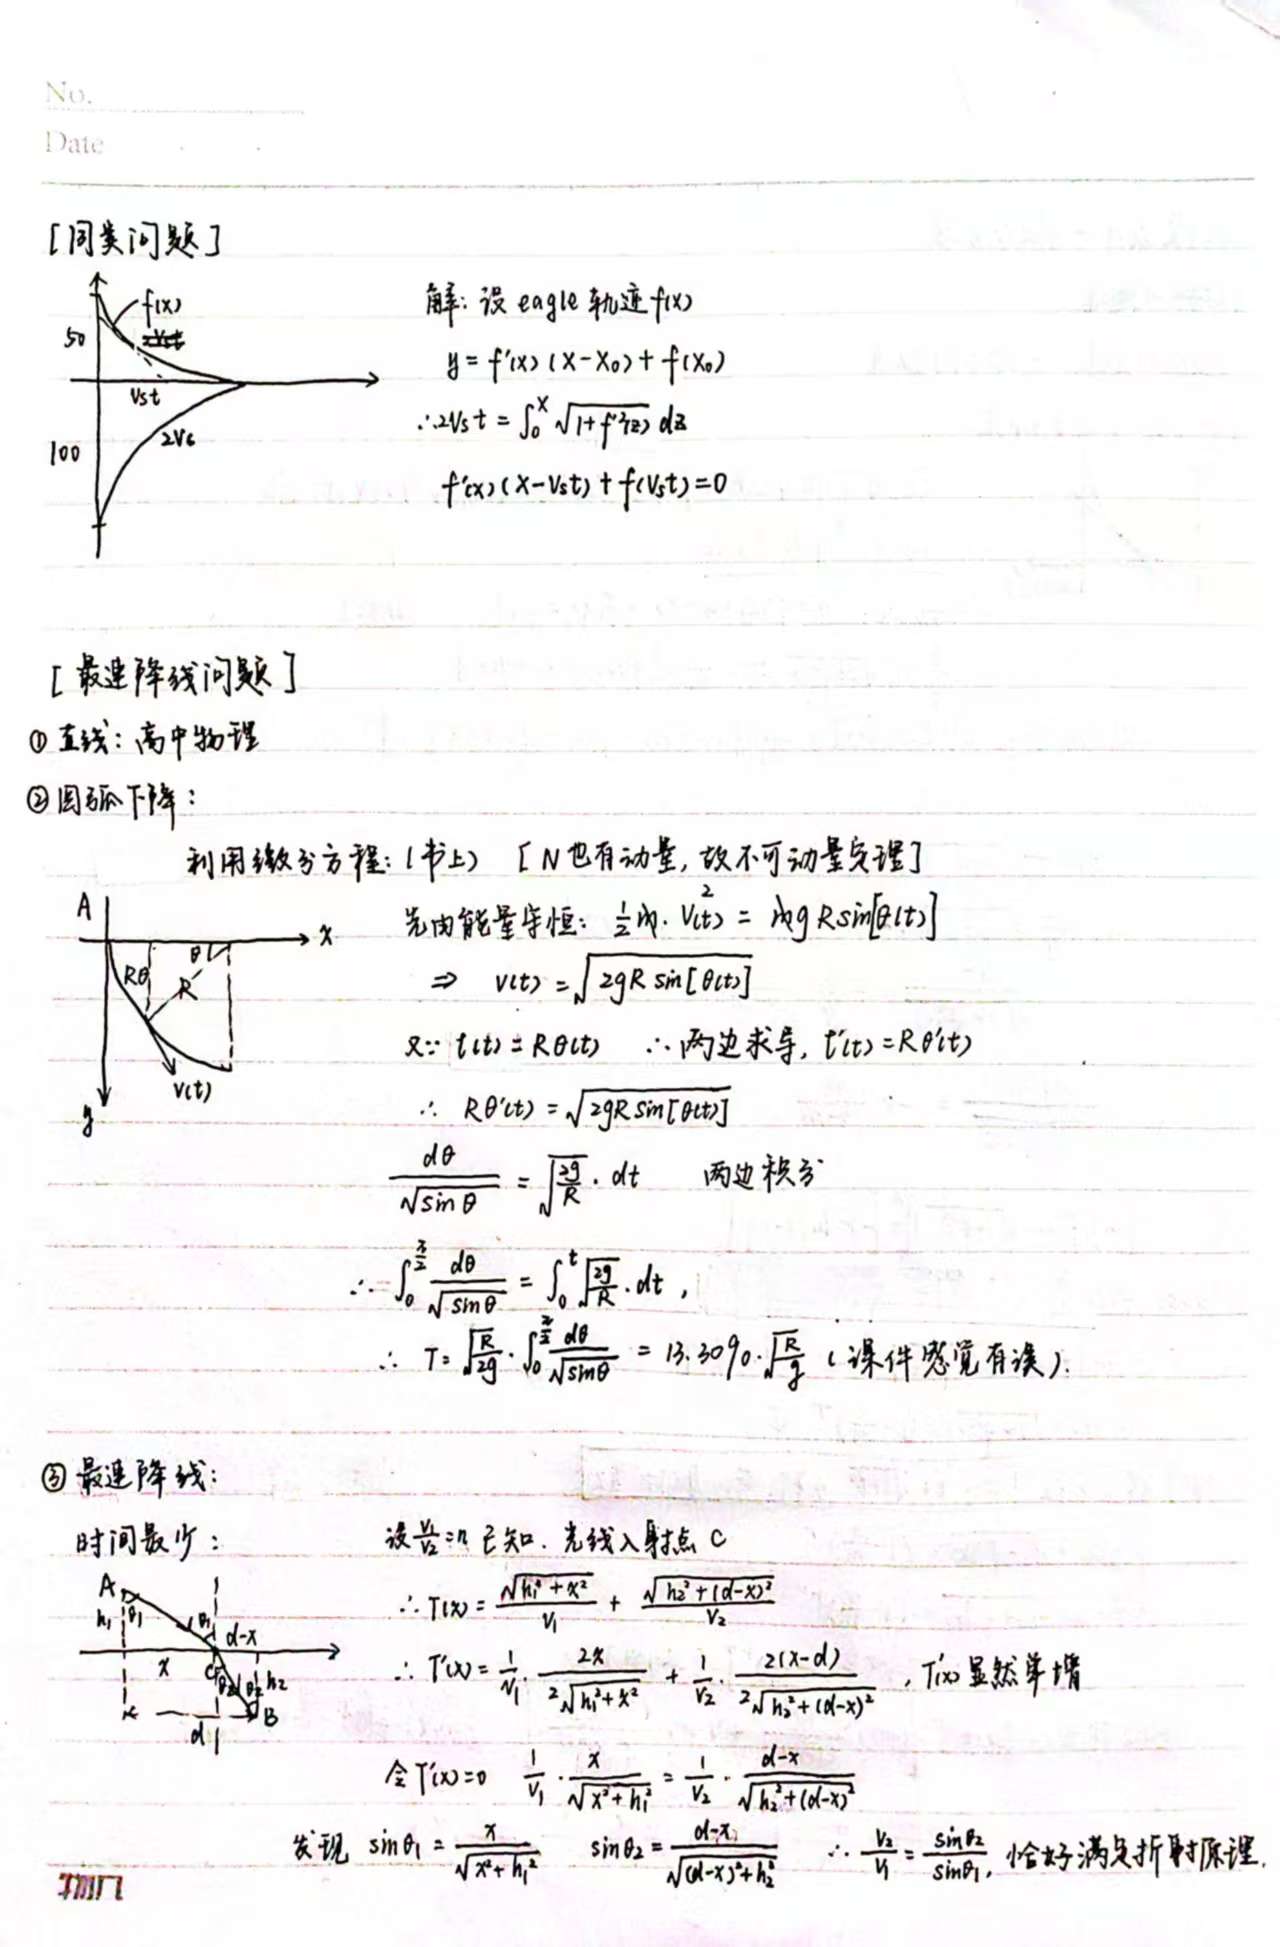 No.
Date
[同类问题]
f(x)
50
Vst
100
2Vs
解: 设 eagle 轨迹 f(x)
y = f'(x) (x-x₀) + f(x₀)
∴2Vst = ∫₀ˣ √(1+f'²(z)) dz
f'(x) (x-Vst) + f(Vst) = 0
[最速降线问题]
① 直线: 高中物理
② 圆弧下降:
利用微分方程: (书上) [N也有动量, 故不可动量定理]
A
x
θ
Rθ
R
v(t)
y
先由能量守恒: 1/2 m · V(t)² = mg R sin[θ(t)]
⇒ v(t) = √(2gR sin[θ(t)])
又∵ l(t) = Rθ(t) ∴ 两边求导, l'(t) = Rθ'(t)
∴ Rθ'(t) = √(2gR sin[θ(t)])
dθ/√sinθ = √(2g/R) · dt 两边积分
∴ ∫₀^(π/2) dθ/√sinθ = ∫₀ᵗ √(2g/R) · dt ,
∴ T = √(R/2g) · ∫₀^(π/2) dθ/√sinθ = 13.3090 · √(R/g) (课件感觉有误).
③ 最速降线:
时间最少:
A
h₁
θ₁
θ₁
d-x
x
C
θ₂
θ₂
h₂
B
d
设 V₁/V₂ = n 已知. 光线入射点 C
∴ T(x) = √(h₁²+x²)/V₁ + √(h₂²+(d-x)²)/V₂
∴ T'(x) = 1/V₁ · 2x/(2√(h₁²+x²)) + 1/V₂ · 2(x-d)/(2√(h₂²+(d-x)²)) , T'(x) 显然单增
令 T'(x)=0 1/V₁ · x/√(x²+h₁²) = 1/V₂ · (d-x)/√(h₂²+(d-x)²)
发现 sinθ₁ = x/√(x²+h₁²) sinθ₂ = (d-x)/√((d-x)²+h₂²) ∴ V₂/V₁ = sinθ₂/sinθ₁, 恰好满足折射原理.